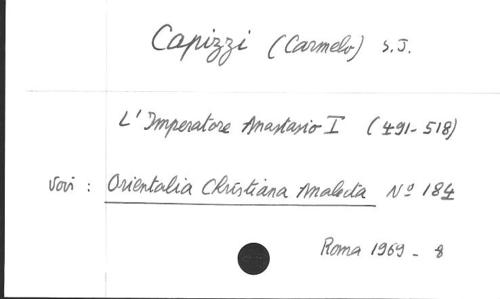 Capizzi (Carmelo) S.J.
L'Imperatore Anastasio I (491-518)
Voir : Orientalia Christiana Analecta Nº 184
Roma 1969 - 8